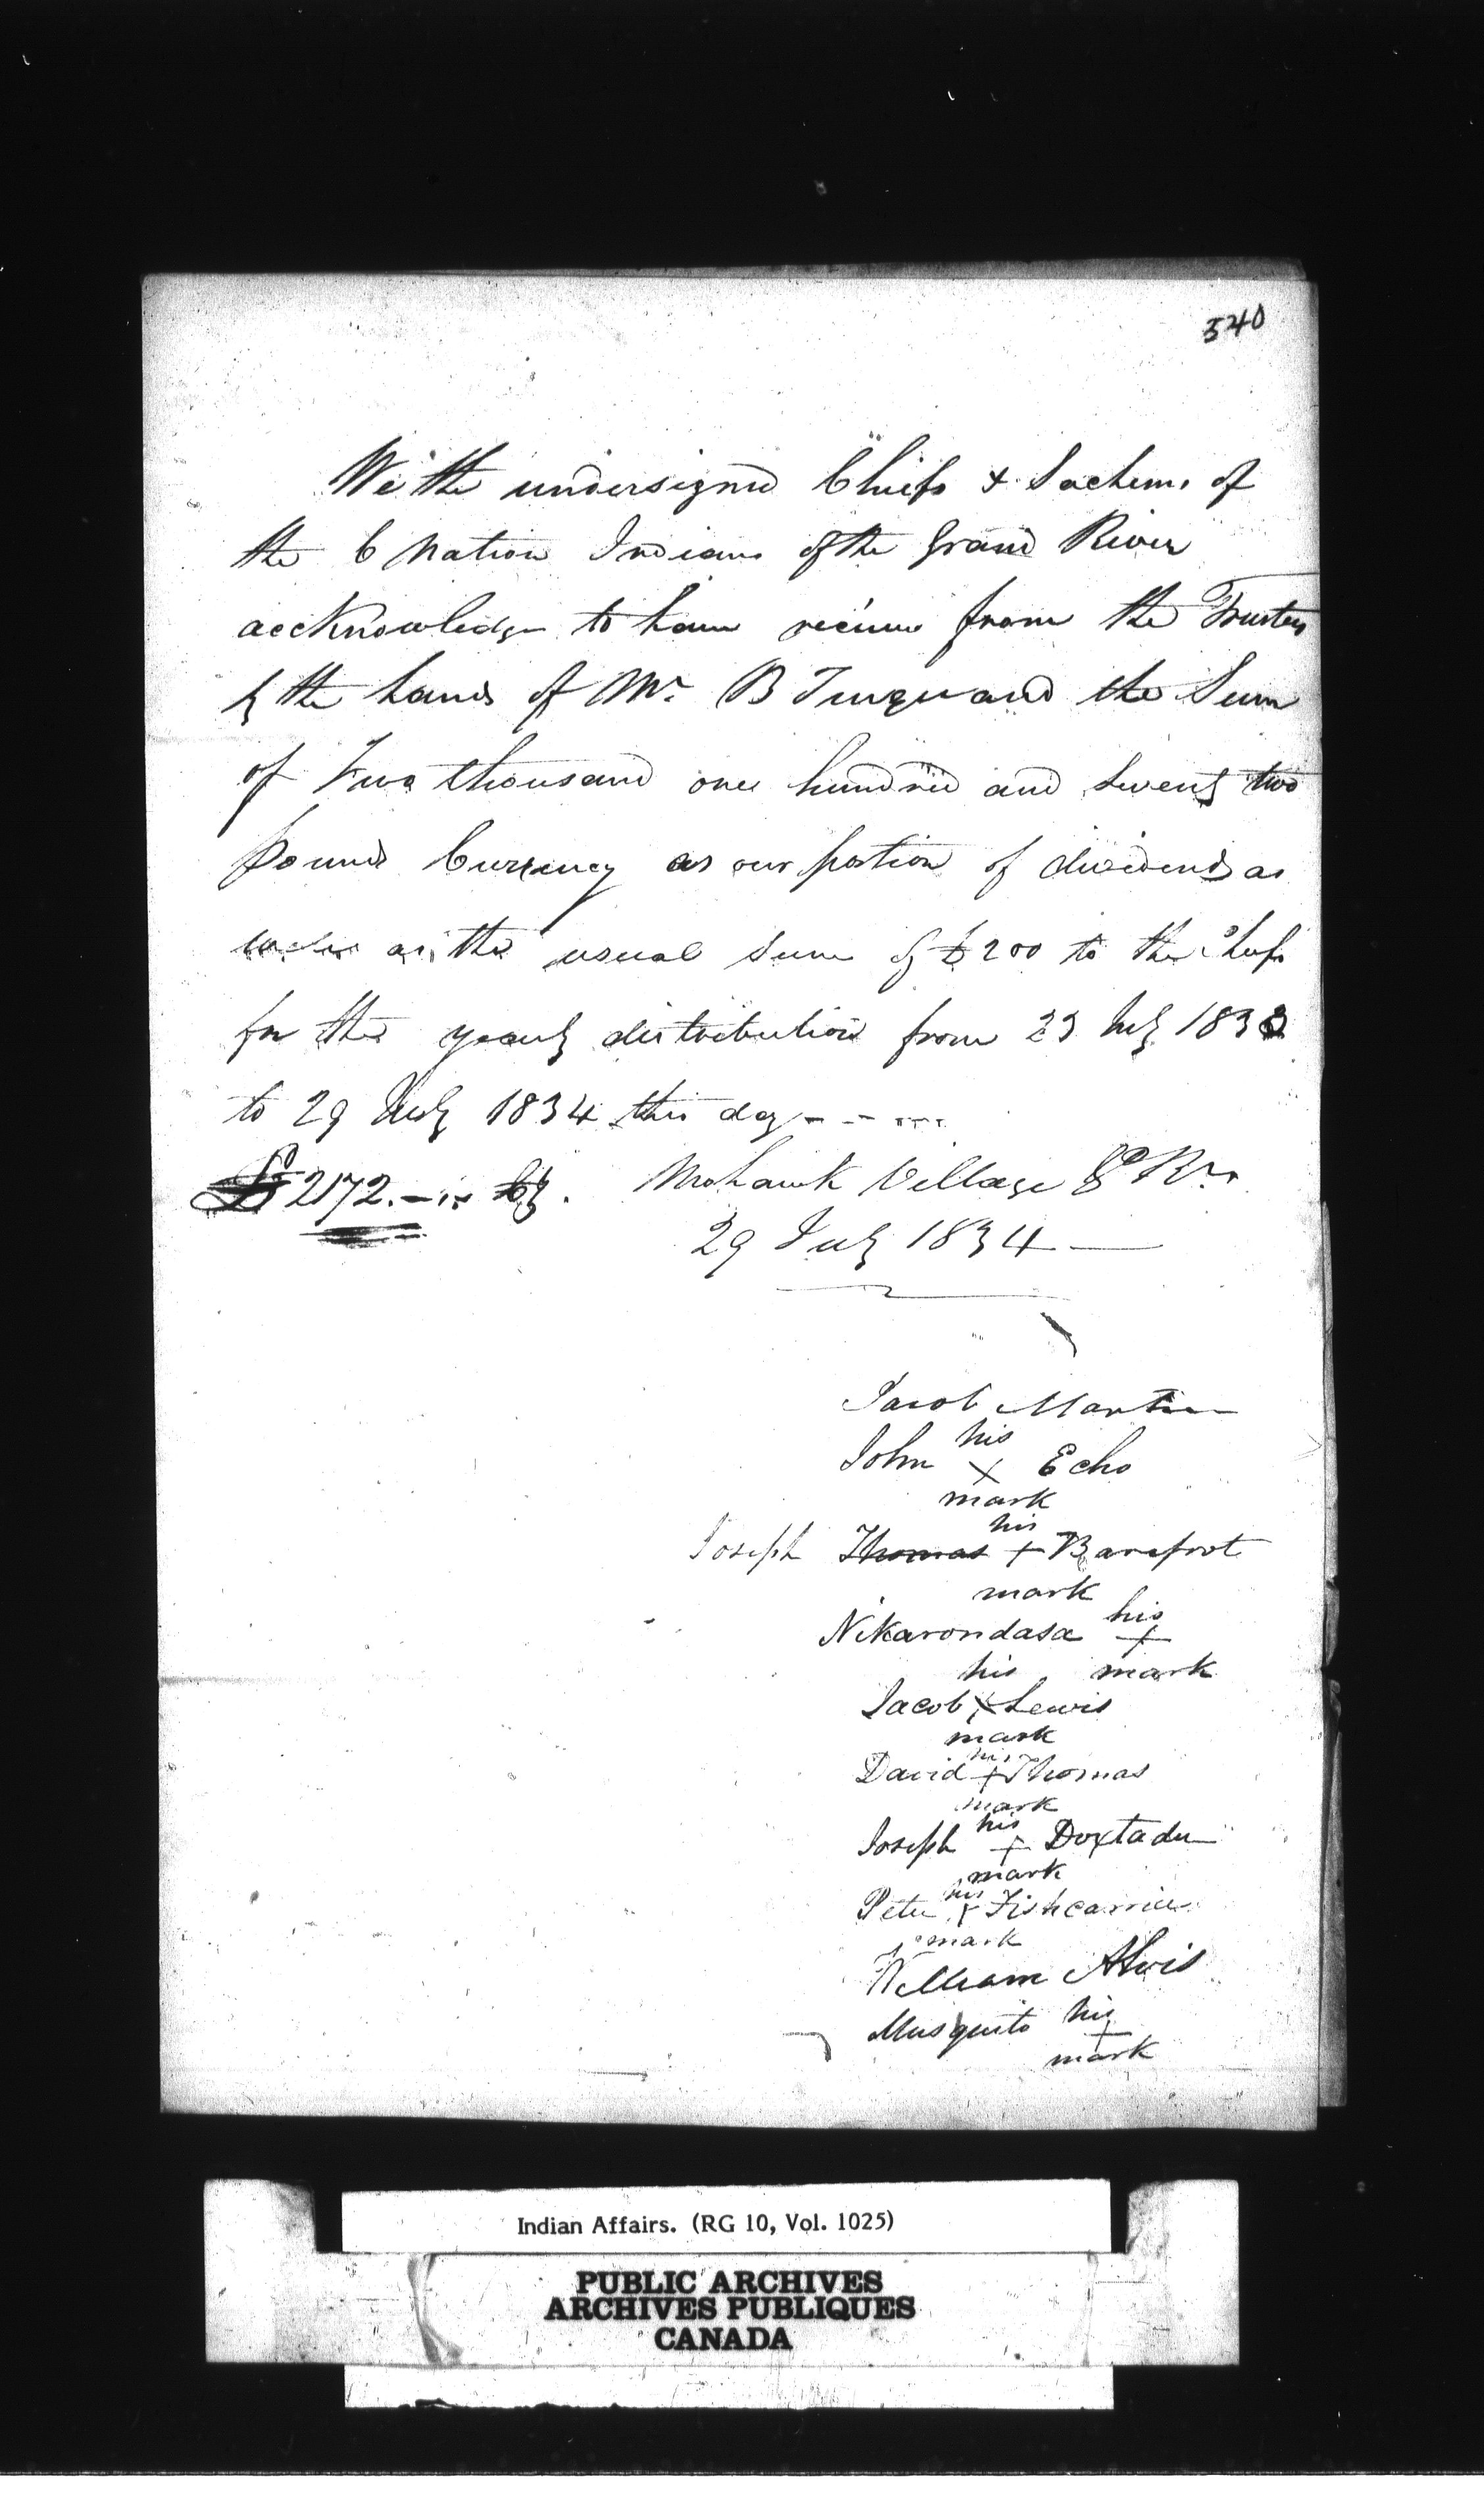 540
We the undersigned Chiefs & Sachems of
the 6 Nation Indians of the Grand River
accknowledge to have receive from the Trustees
by the hands of Mr. B Turquand the Sum
of Two thousand one hundred and seventy two
pounds Currency as our portion of dividends as
as the usual sum of £200 to the Chiefs
for the yearly distribution from 23 July 1833
to 29 July 1834 this day - - ....
£2172.-.. Cy. Mohawk Village G Rr.
29 July 1834
Jacob Martin
his
John X Echo
mark
his
Joseph Thomas + Barefoot
mark
Nikarondasa his +
his mark
Jacob X Lewis
mark
his
David + Thomas
mark
his
Joseph + Doxtader
mark
his
Peter + Fishcarrier
mark
William Alvis
Musquito his +
mark
Indian Affairs. (RG 10, Vol. 1025)
PUBLIC ARCHIVES
ARCHIVES PUBLIQUES
CANADA